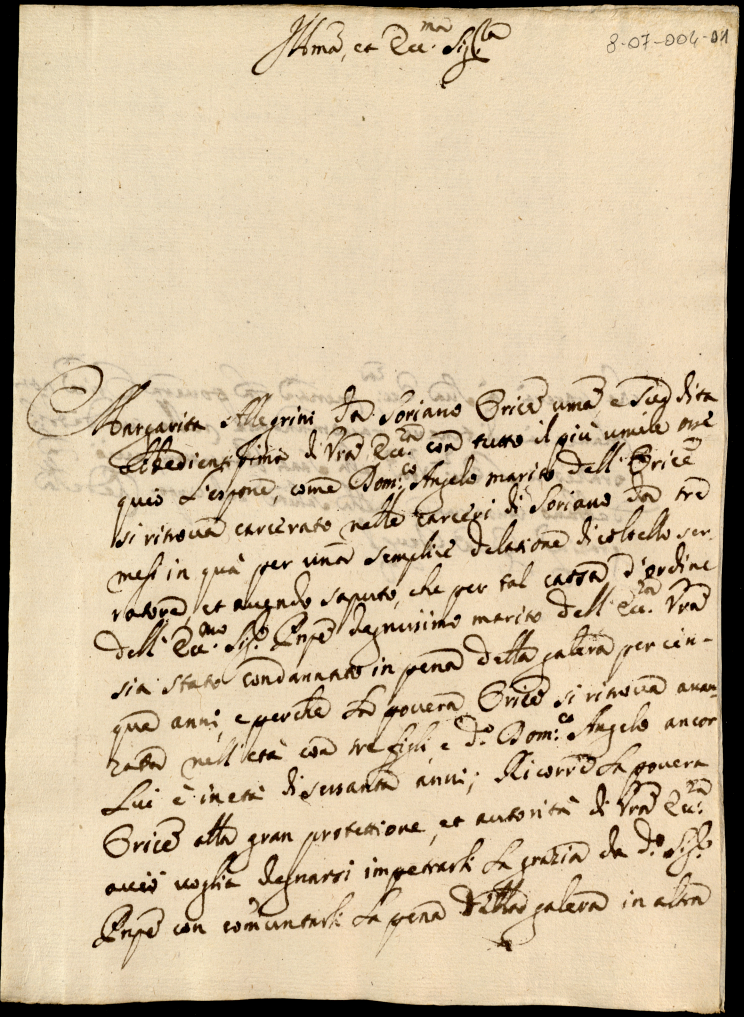 8-07-004-01
Ill.ma, et Ecc.ma Sig.ra
Margarita Allegrini da Soriano Or.ice uma e Sud.dita
obbedientissima di V.ra Ecc.za con tutto il più umile osse
quio L'espone, come Dom.co Angelo marito dell'Or.ice
si ritrova carcerato nelle carceri di Soriano da tre
mesi in quà per una semplice delazione di coltello ser
ratore, et avendo saputo, che per tal causa d'ordine
dell'Ecc.mo Sig.r Pnpe degnissimo marito dell'Ecc.za V.ra
sia stato condannato in pena della galera per cin-
que anni, e perche la povera Or.ice si ritrova avan-
zata nell'età con tre figli, e d.o Dom.co Angelo ancor
Lui è in età di sessanta anni; Ricorre la povera
Or.ice alla gran protettione, et autorità di V.ra Ecc.za
acciò voglia degnarsi impetrarli la grazia da d.o Sig.r
Pnpe con comutarli la pena della galera in altra